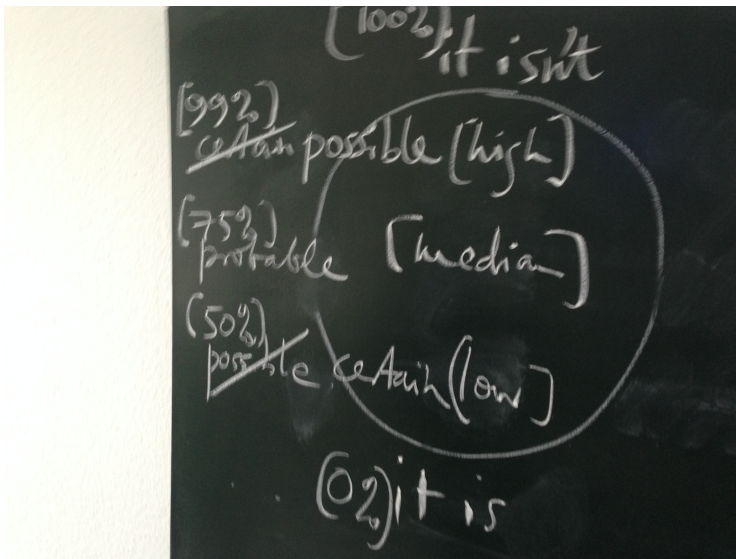 (100%) it isn't
[99%]
certain possible [high]
[75%]
probable [median]
(50%)
possible certain (low]
(0%) it is